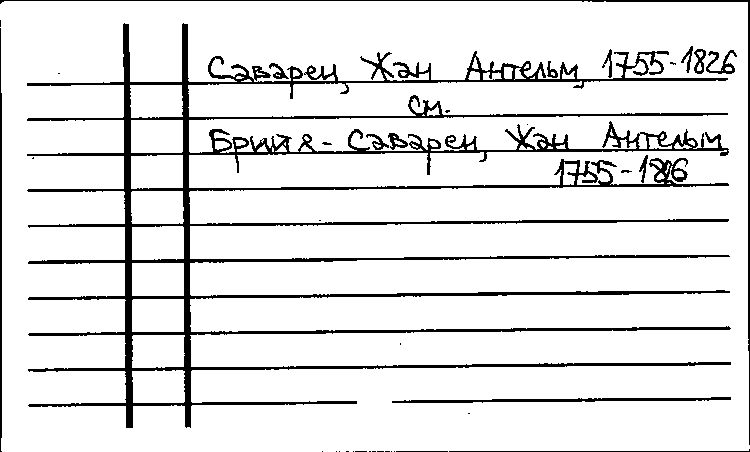 Саварен, Жан Антельм, 1755-1826
см.
Брийя-Саварен, Жан Антельм,
1755-1826